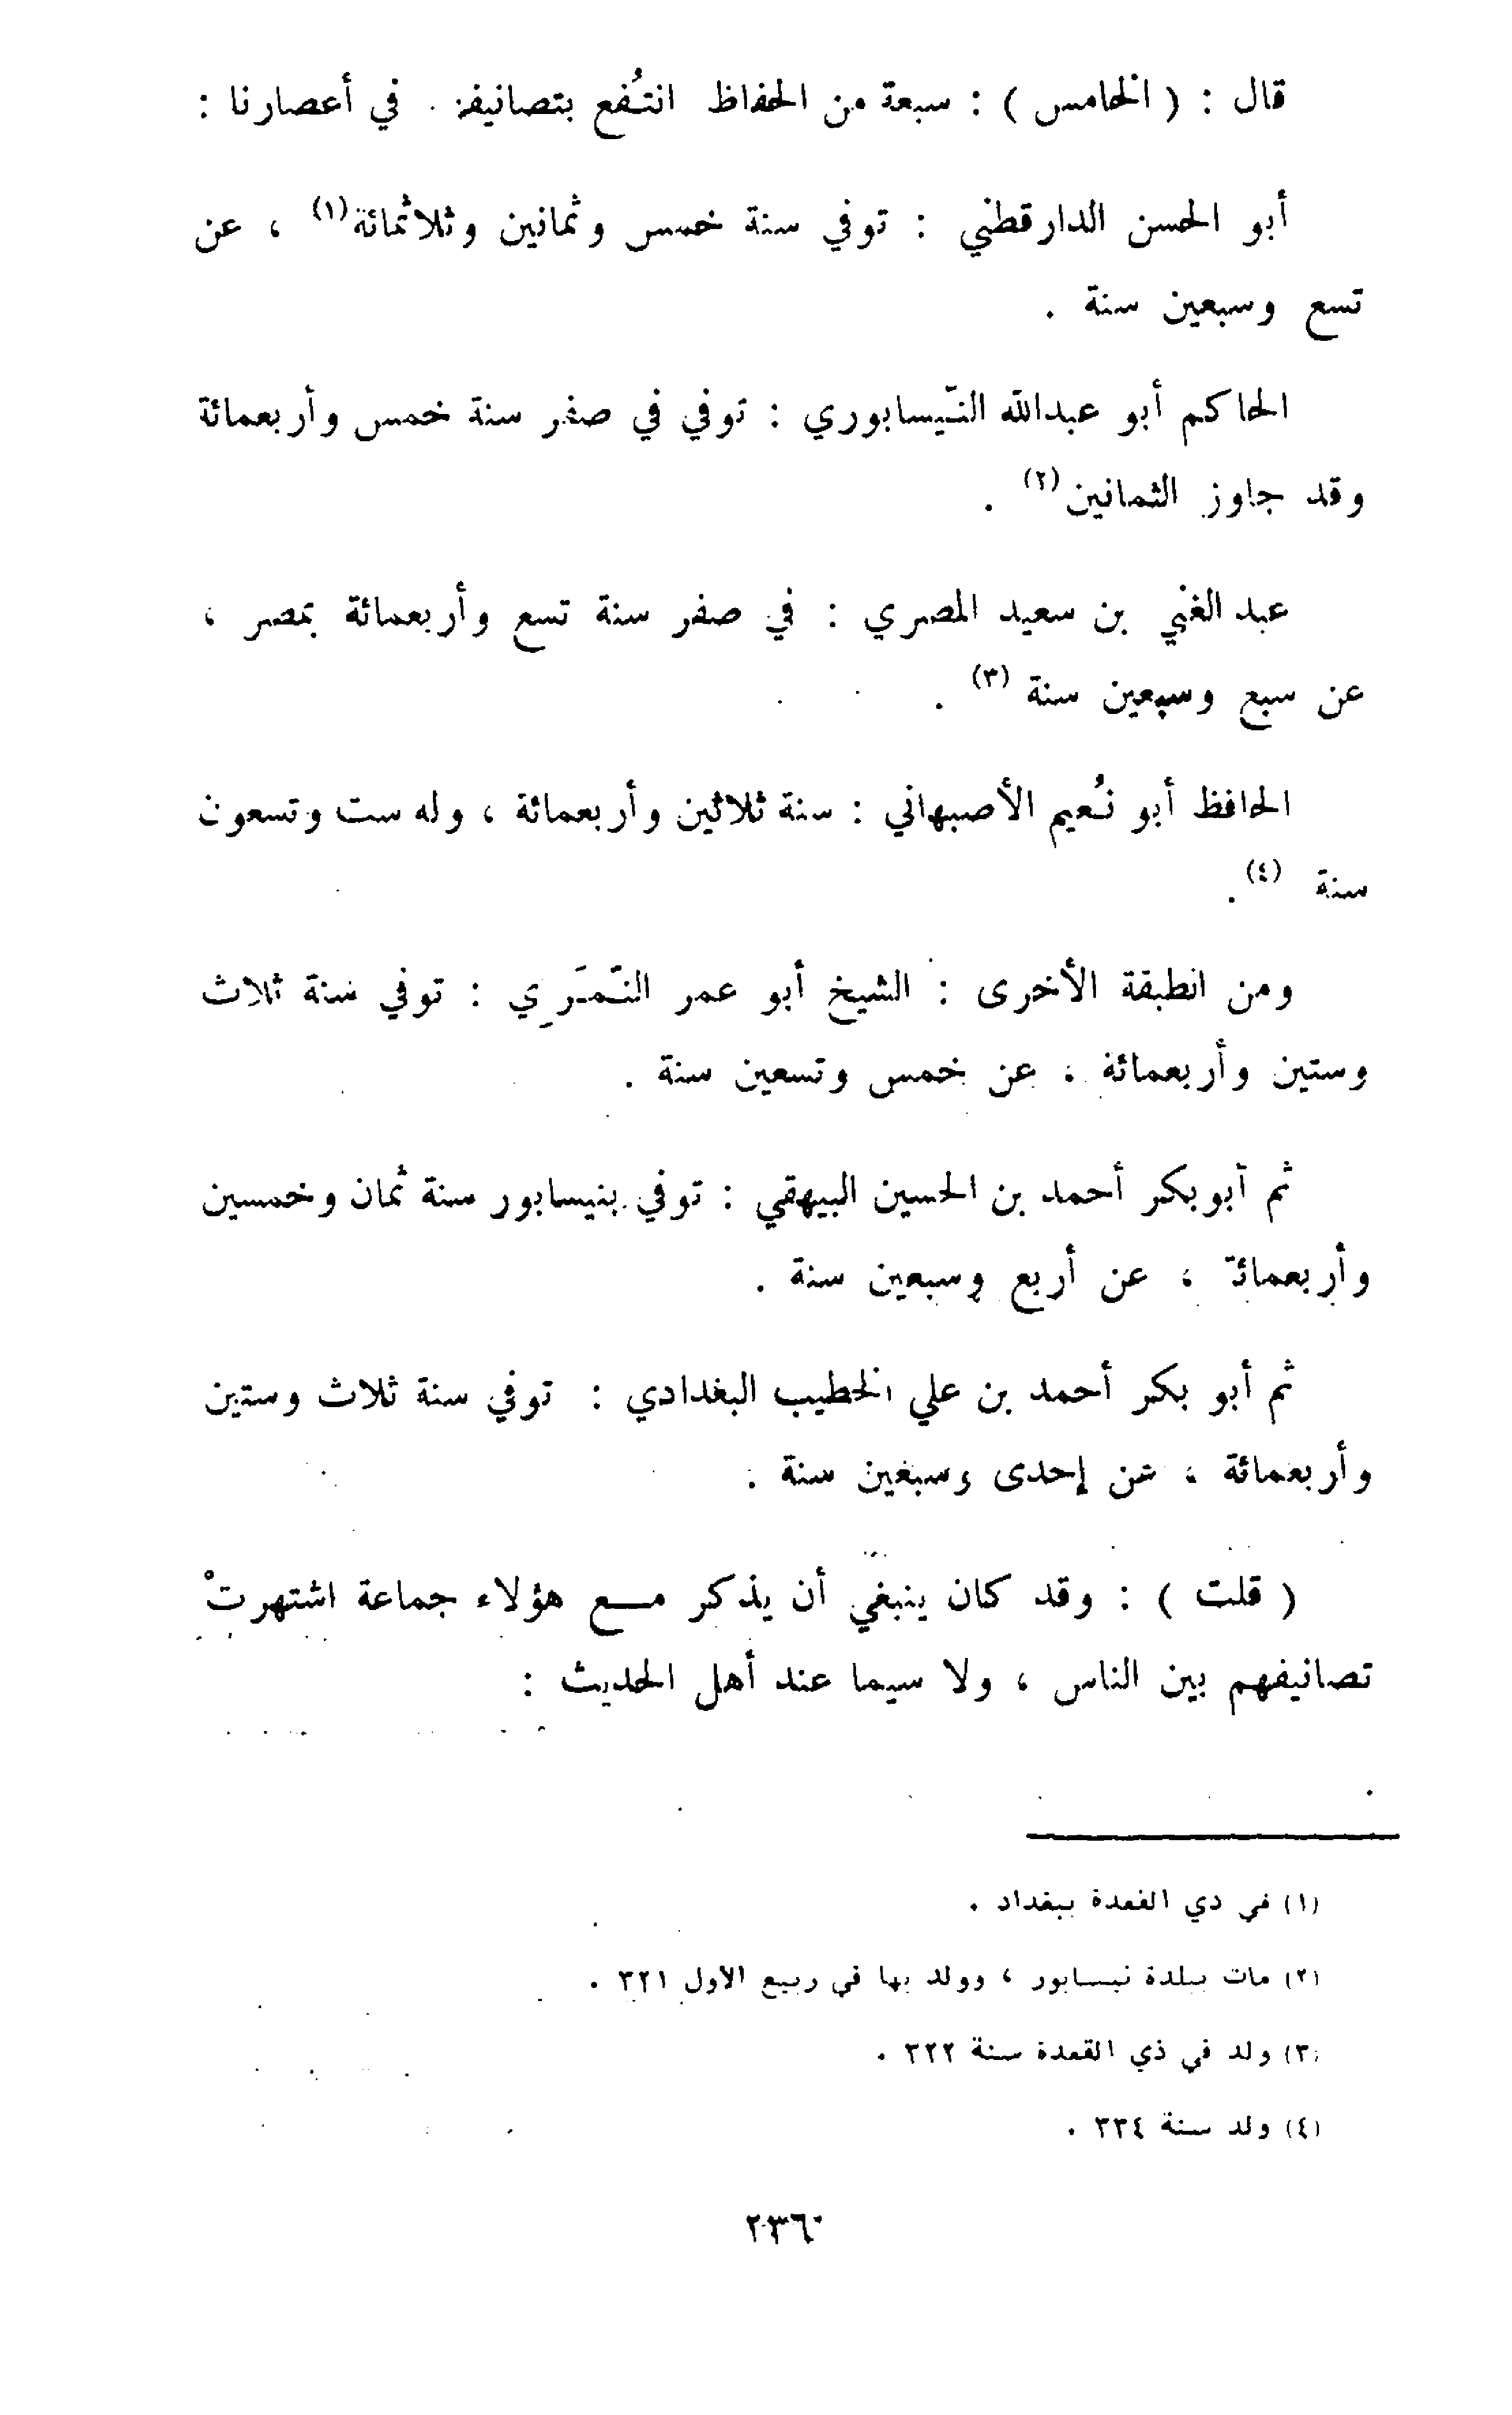 قال : ( الخامس ) : سبعة من الحفاظ انتُفع بتصانيفهم في أعصارنا :
أبو الحسن الدارقطني : توفي سنة خمس وثمانين وثلاثمائة(١) ، عن
تسع وسبعين سنة .
الحاكم أبو عبدالله النَّيسابوري : توفي في صفر سنة خمس وأربعمائة
وقد جاوز الثمانين(٢) .
عبد الغني بن سعيد المصري : في صفر سنة تسع وأربعمائة بمصر ،
عن سبع وسبعين سنة (٣) .
الحافظ أبو نُعيم الأصبهاني : سنة ثلاثين وأربعمائة ، وله ست وتسعون
سنة (٤) .
ومن الطبقة الأخرى : الشيخ أبو عمر النَّمَرِي : توفي سنة ثلاث
وستين وأربعمائة ، عن خمس وتسعين سنة .
ثم أبوبكر أحمد بن الحسين البيهقي : توفي بنيسابور سنة ثمان وخمسين
وأربعمائة ، عن أربع وسبعين سنة .
ثم أبو بكر أحمد بن علي الخطيب البغدادي : توفي سنة ثلاث وستين
وأربعمائة ، عن إحدى وسبعين سنة .
( قلت ) : وقد كان ينبغي أن يذكر مع هؤلاء جماعة اشتهرتْ
تصانيفهم بين الناس ، ولا سيما عند أهل الحديث :
(١) في ذي القعدة ببغداد .
(٢) مات ببلدة نيسابور ، وولد بها في ربيع الاول ٣٢١ .
(٣) ولد في ذي القعدة سنة ٣٣٢ .
(٤) ولد سنة ٣٣٤ .
٢٣٦